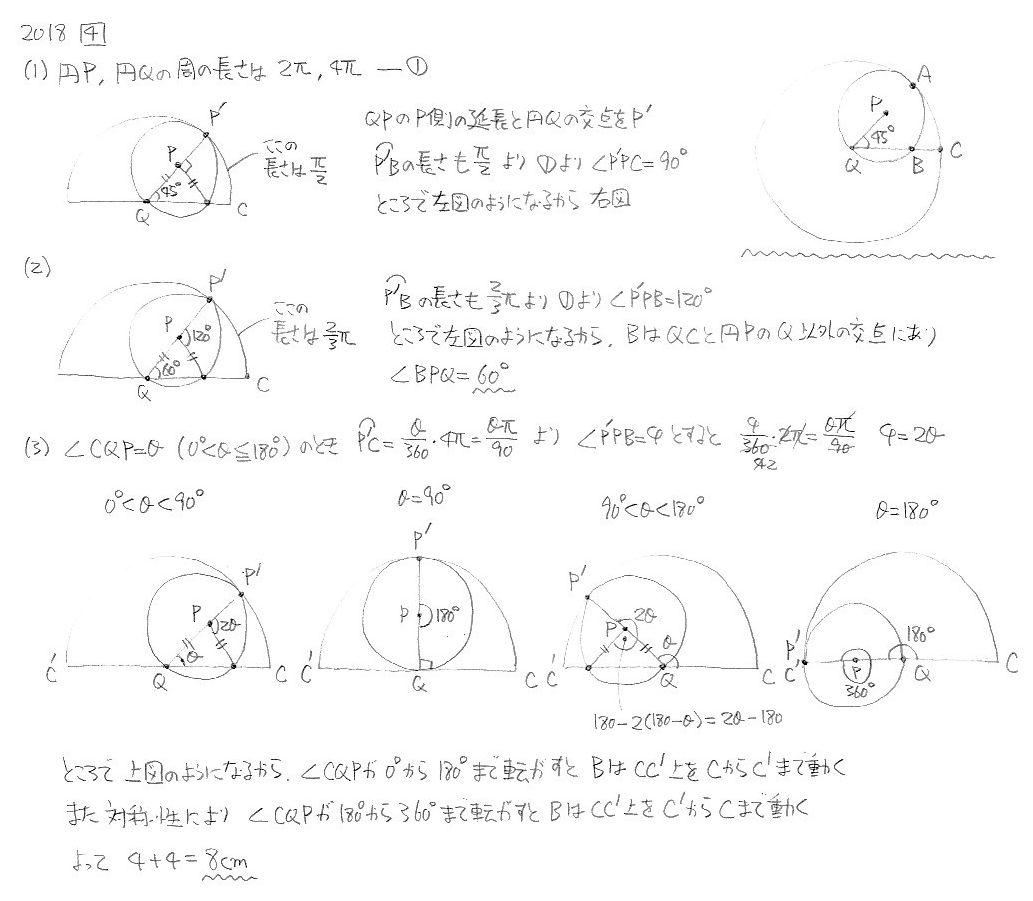 2018 4
(1) 円P, 円Qの周の長さは 2π, 4π —①
P'
P
45°
Q
C
ここの
長さは π/2
QPのP側の延長と円Qの交点をP'
P'Bの長さも π/2 より ①より ∠P'PC=90°
ところで左図のようになるから 右図
A
P
45°
Q
B
C
(2)
P'
P
120°
60°
Q
C
ここの
長さは 2/3π
P'Bの長さも 2/3π より ①より ∠P'PB=120°
ところで左図のようになるから, BはQCと円PのQ以外の交点にあり
∠BPQ=60°
(3) ∠CQP=θ (0°<θ≦180°) のとき P'C=θ/360・4π=θπ/90 より ∠P'PB=φとすると φ/360・2π=θπ/90 φ=2θ
0°<θ<90°
θ=90°
90°<θ<180°
θ=180°
P'
P
2θ
θ
C'
Q
C
P'
P
180°
C'
Q
C
P'
P
2θ
θ
C'
Q
C
180-2(180-θ)=2θ-180
P'
C'
P
360°
180°
Q
C
ところで 上図のようになるから, ∠CQPが 0°から 180°まで転がすと BはCC'上をCからC'まで動く
また対称性により ∠CQPが180°から360°まで転がすとBはCC'上をC'からCまで動く
よって 4+4=8cm